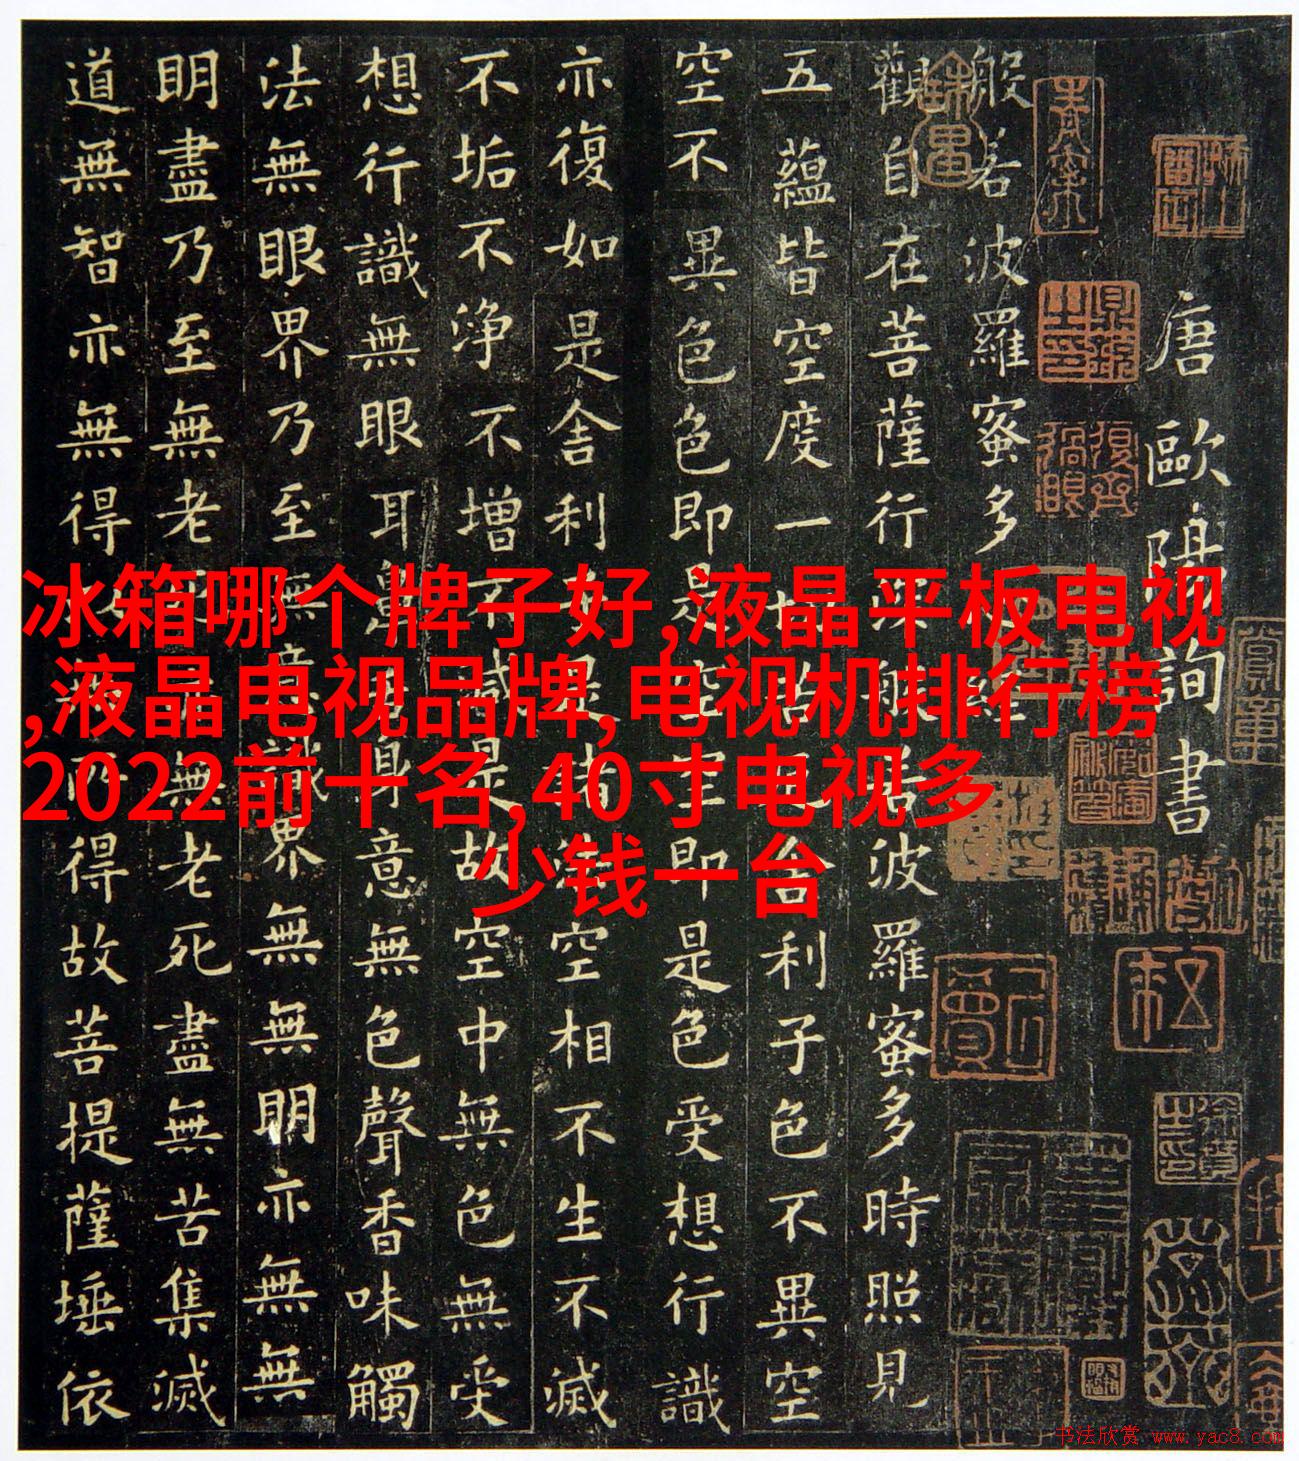 唐歐陽詢書
般若波羅蜜多
觀自在菩薩行深般若波羅蜜多時照見
五蘊皆空度一切苦厄舍利子色不異空
空不異色色即是空空即是色受想行識
亦復如是舍利子是諸法空相不生不滅
不垢不淨不增不減是故空中無色無受
想行識無眼耳鼻舌身意無色聲香味觸
法無眼界乃至無意識界無無明亦無無
明盡乃至無老死亦無老死盡無苦集滅
道無智亦無得以無所得故菩提薩埵依
冰箱哪个牌子好,液晶平板电视
,液晶电视品牌,电视机排行榜
2022前十名,40寸电视多
少钱一台
书法欣赏 www.yac8.com